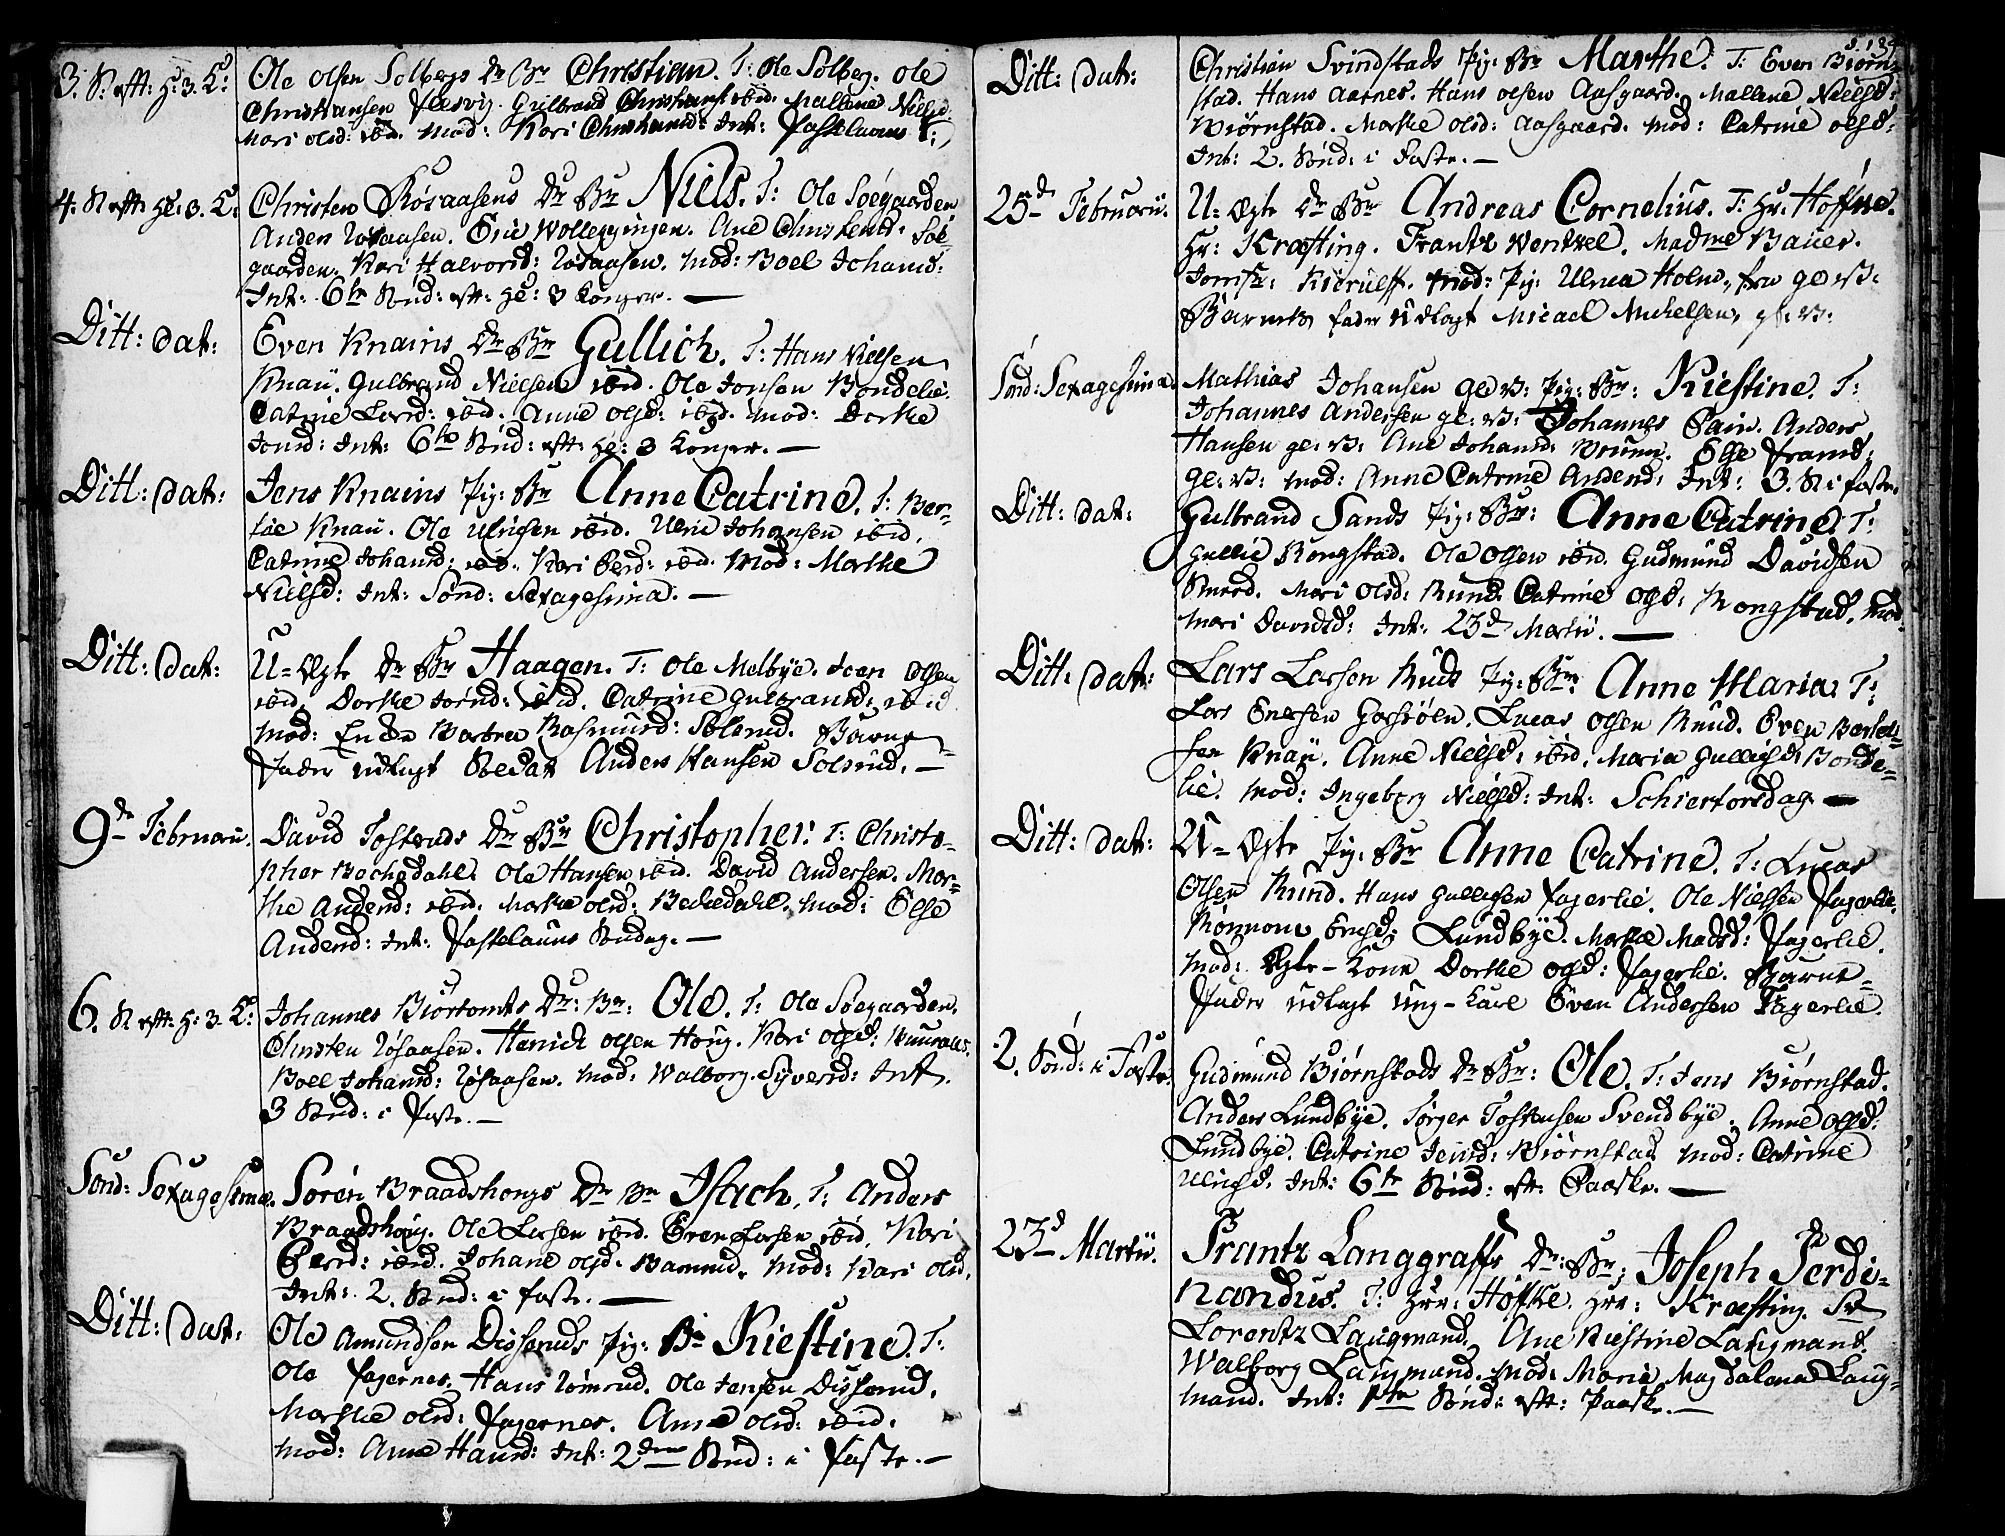 3. S. eftt: H: 3. K:
Ole Olsen Solbergs Dr: Br: Christian. T: Ole Solberg. Ole
Christiansen Flesvig. Gulbrand Christians: ibid. Mallene Nielsd:
Mari Olsd: ibid. Mod: Kari Christiansd: Int: Fastelauns S:
4. S. eftt: He: 3. K:
Christen Røsaasens Dr: Br: Niels. T: Ole Søegaarden
Anders Røsaasen. Eric Wolleggingen. Ane Christensd: Søe-
gaarden. Kari Halvorsd: Røsaasen. Mod: Boel Johansd:
Int: 6te Sönd: eft: He: 3 Konger. —
Ditt: Dat:
Even Knains Dr: Br: Gullich. T: Hans Nielsen
Knaii. Gulbrand Nielsen ibid. Ole Jonsen Bondelie.
Catrine Larsd: ibid. Anne Olsd: ibid. Mod: Dorthe
Jonsd: Int: 6te Sönd: eft: He: 3 Konger. —
Ditt: Dat:
Jens Knains Pig: Br: Anne Catrine. T: Ber-
tie Knaii. Ole Ulrigsen ibid. Ulric Johansen ibid.
Catrine Johansd: ibid. Kari Persd: ibid. Mod: Marthe
Nielsd: Int: Sönd: Sexagesima. —
Ditt: Dat:
U-Ægte Dr: Br: Haagen. T: Ole Melbye. Joen Olsen
ibid. Dorthe Jörnsd: ibid. Catrine Gulbransd: ibid
Mod: Enke Barbra Rasmusd: Solsrud. Barne-
Fader udlagt Soldat Anders Hansen Solsrud. —
9de Februarii.
David Tostruds Dr: Br: Christopher. T: Christo-
pher Bechedahl. Ole Hansen ibid. David Andersen. Mar-
the Andersd: ibid. Marthe Olsd: Bechedahl. Mod: Else
Andersd: Int: Fastelauns Söndag. —
6. S. eftt: H: 3. K:
Johannes Biørtomts Dr: Br: Ole. T: Ole Søegaarden.
Christen Røsaasen. Henrich Olsen Houg. Kari Olsd:
Boel Johansd: Røsaasen. Mod: Walborg Syversd: Int:
3 Sönd: i Faste. —
Sönd: Sexagesima.
Sören Braadshougs Dr: Br: Isach. T: Anders
Braadshoug. Ole Larsen ibid. Even Larsen ibid. Kari
Persd: ibid. Johane Olsd: Mod: Kari Olsd.
Int: 2. Sönd: i Faste. —
Ditt: Dat:
Ole Amundsen Disseruds Pig: Br: Kiestine. T:
Ole Fagernes. Hans Römrud. Ole Jensen Disserud.
Marthe Olsd: Fagernes. Anne Olsd: ibid:
Mod: Anne Hansd: Int: 2den Sönd: i Faste. —
Ditt: Dat:
Christian Svindstads Pig: Br: Marthe. T: Even Biørn-
stad. Hans Aarnes. Hans Olsen Aasgaard. Mallene Nielsd:
Biørnstad. Marthe Olsd: Aasgaard. Mod: Catrine Olsd:
Int: 2. Sönd: i Faste. —
25de Februarii.
U-Ægte Dr: Br: Andreas Cornelius. T: Hr: Höffke.
Hr: Kræfting. Frantz Wentzel. Madme Bauer.
Jomfr: Kierulff. Mod: Pig: Ulrica Holm, fra ge: V:
Barnets fader udlagt Micael Michelsen, ge: V:
Sönd: Sexagesima.
Mathias Johansen ge: V: Pig: Br: Kiestine. T:
Johannes Andersen ge: V: Johannes Pain. Anders
Hansen ge: V: Ane Johansd: Bruun. Else Fransd:
ge: V: Mod: Anne Catrine Andersd: Int: 3. S. i Faste.
Ditt: Dat:
Gulbrand Sands Pig: Br: Anne Catrine. T:
Gullic Kongstad. Ole Olsen ibid. Gudmund Davidsen
Mari Olsd: Ruud. Catrine Olsd: Kongstad. Mod:
Mari Davidsd: Int: 23de Martii. —
Ditt: Dat:
Lars Larsen Ruds Pig: Br: Anne Maria. T:
Lars Enersen Lucas Olsen Ruud. Even Bertel-
sen Knaii. Anne Nielsd: ibid. Maria Gulligsd: Bonde-
lie. Mod: Ingeborg Nielsd: Int: Schiertorsdag —
Ditt: Dat:
U-Ægte Pig: Br: Anne Catrine. T: Lucas
Olsen Ruud. Hans Gulligsen Fagerlie. Ole Nielsen Fagerlie.
Rönnou Lundbye. Marthe Madsd: Fagerlie.
Mod: Ægte-Kone Dorthe Olsd: Fagerlie. Barne-
Fader udlagt ung-Karl Even Andersen Fagerlie.
2. Sönd: i Faste.
Gudmund Biørnstads Dr: Br: Ole. T: Jens Biørnstad.
Anders Lundbye. Törger Tostensen Svendbye. Anne Olsd:
Lundbye. Catrine Jensd: Biørnstad Mod: Catrine
Ulrigsd: Int: 6te Sönd: eft: Paaske. —
23de Martii.
Frantz Langgraffs Dr: Br: Joseph Ferdi-
nandus. T: Herr: Höffke. Herr: Kræfting. Sr
Lorentz Laugmand. Ane Kiestine Laugmand.
Walborg Laugmand. Mod: Maria Magdalena Laug-
mand. Int: 1ste Sönd: eft: Paaske. —